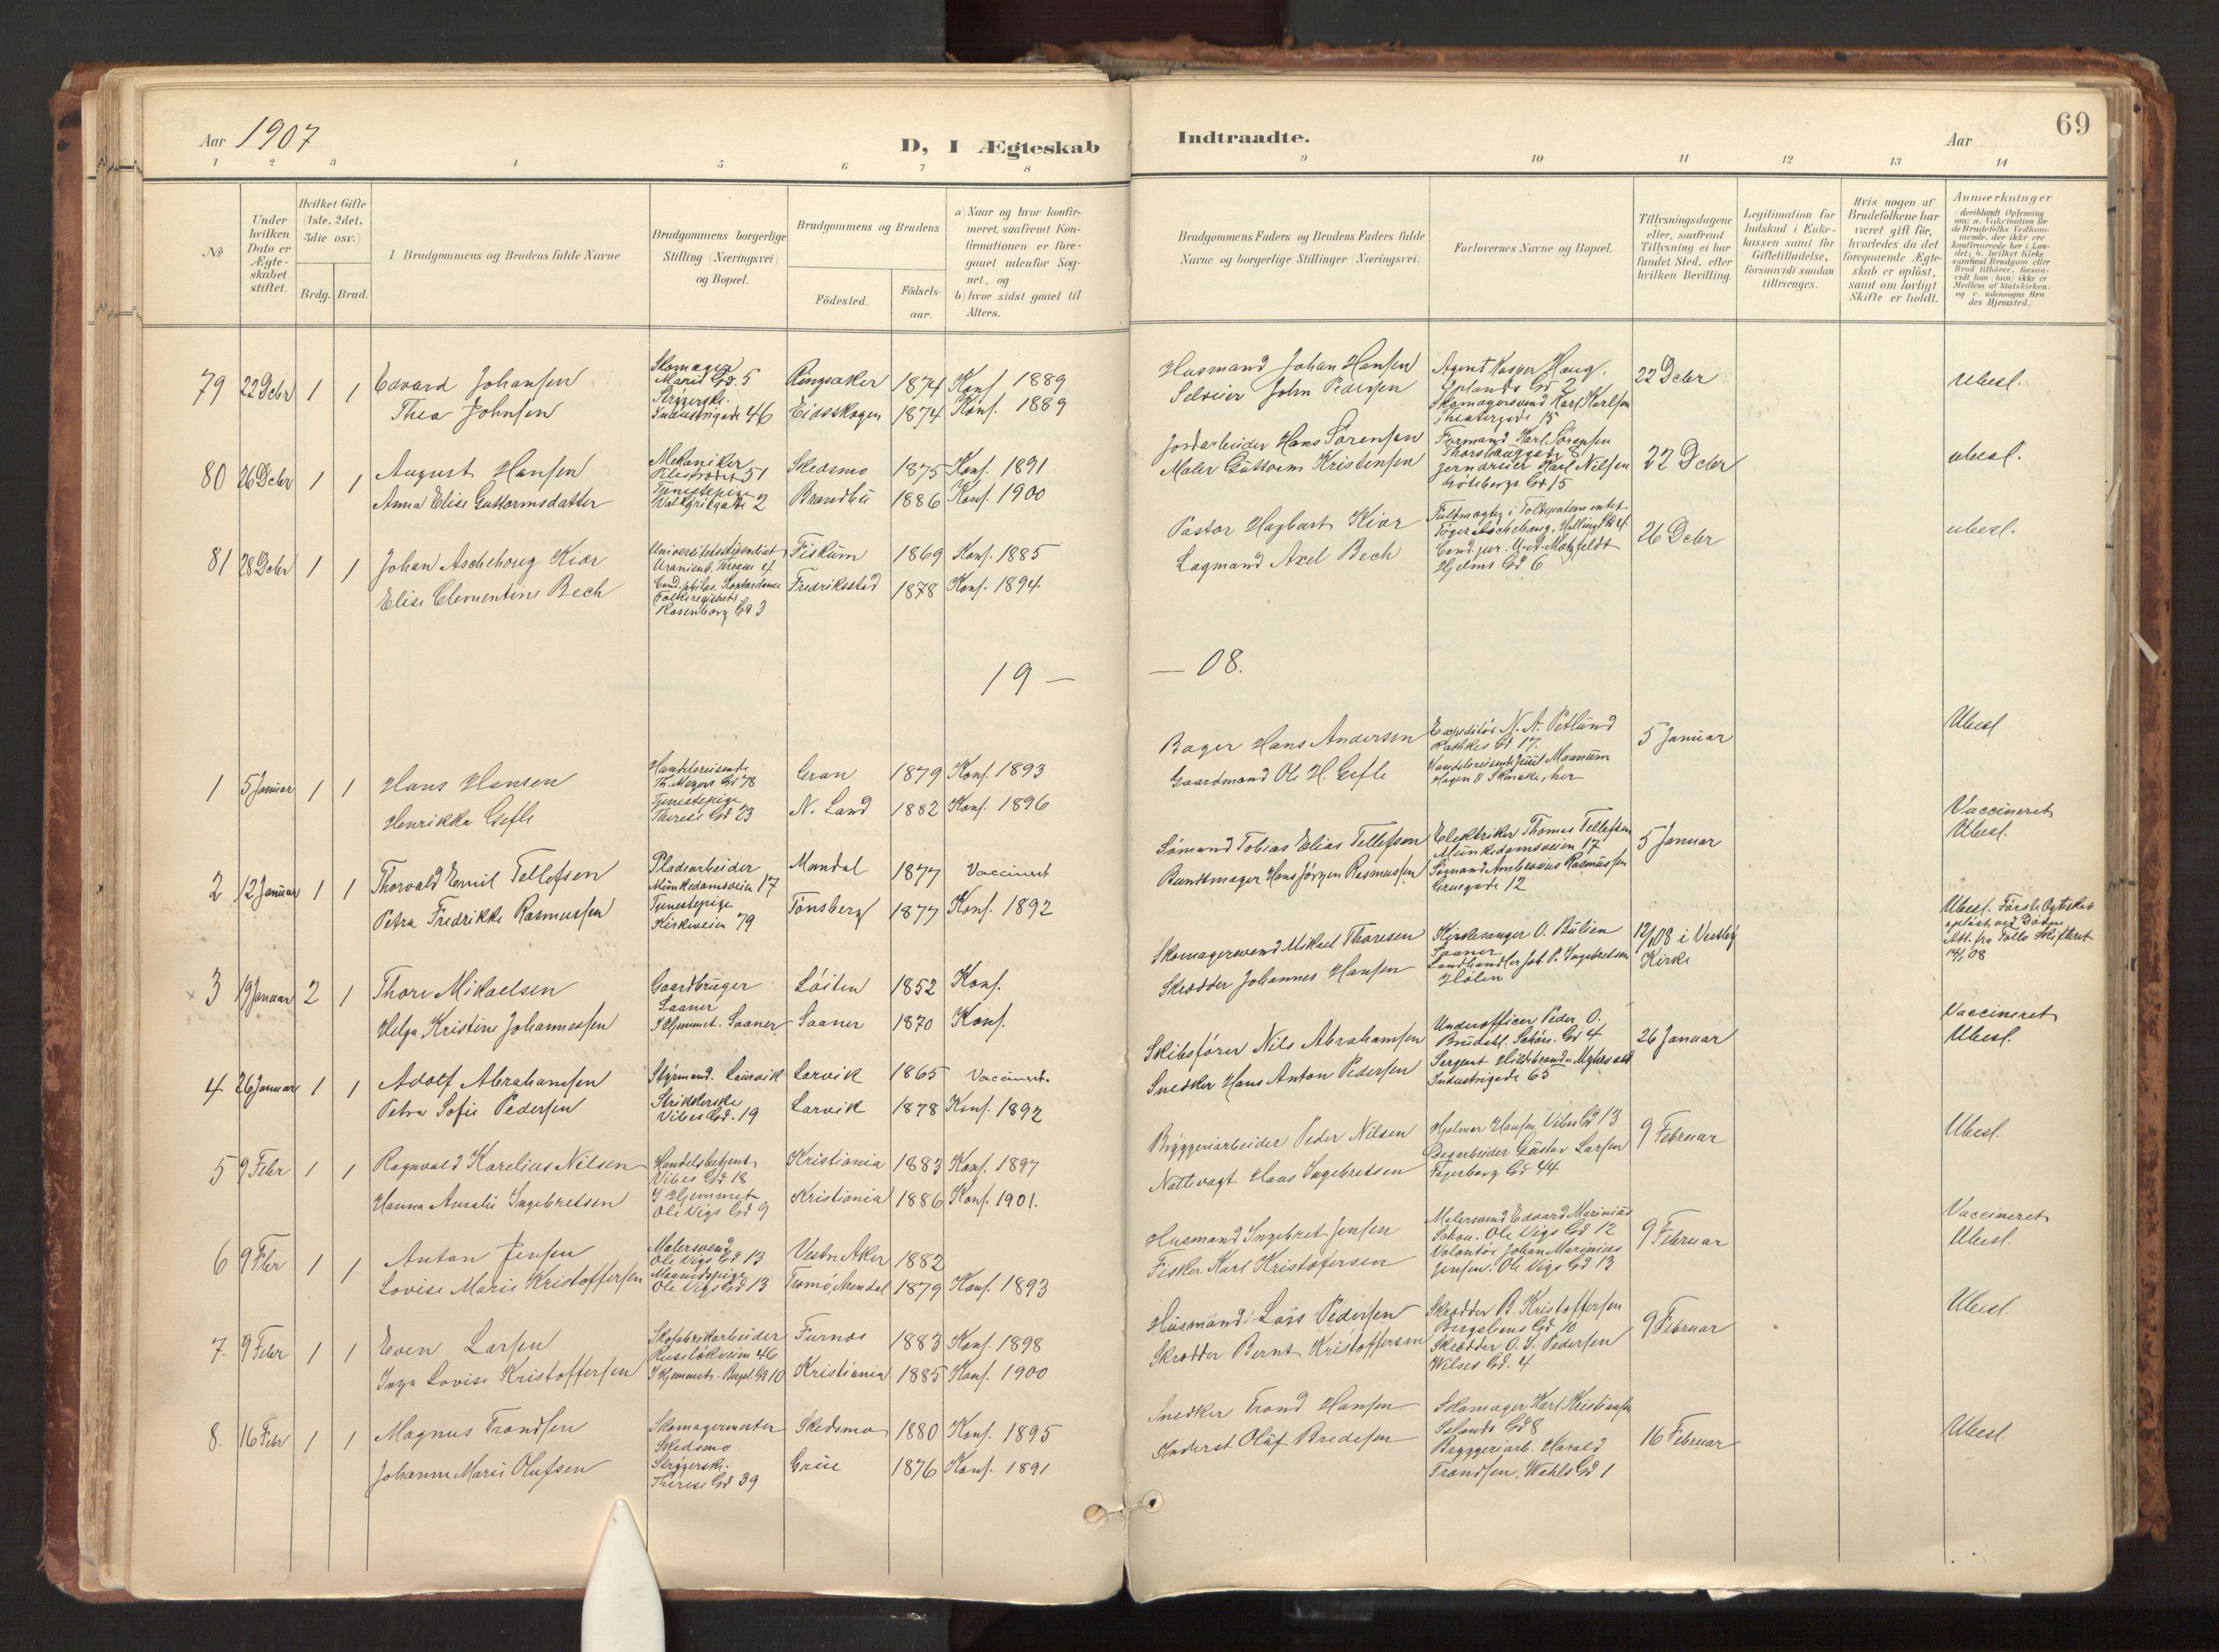 Aar 1907
D, I Ægteskab
Indtraadte.
Aar
69
1 2 3 4 5 6 7 8 9 10 11 12 13 14
№
Under hvilken Dato er Ægteskabet stiftet.
Hvilket Gifte (1ste, 2det, 3die osv.)
Brdg. Brud.
Brudgommens og Brudens fulde Navne
Brudgommens borgerlige Stilling (Næringsvei) og Bopæl.
Brudgommens og Brudens
Födested.
Födselsaar.
a) Naar og hvor konfirmeret, saafremt Konfirmationen er foregaaet udenfor Sognet, og
b) hvor sidst gaaet til Alters.
Brudgommens Faders og Brudens Faders fulde Navne og borgerlige Stillinger (Næringsvei)
Forlovernes Navne og Bopæl.
Tillysningsdagene eller, saafremt Tillysning ei har fundet Sted, efter hvilken Bevilling.
Legitimation for Indskud i Enkekassen samt for Giftetilladelse, forsaavidt saadan tiltrænges.
Hvis nogen af Brudefolkene har været gift för, hvorledes da det foregaaende Ægteskab er oplöst, samt om lovligt Skifte er holdt.
Anmærkninger
79 22 Debr 1 1 Edvard Johansen Skomager Marid Gd. 5 Ringsaker 1874 Konf 1889 Husmand Johan Hansen Agent Kasper Haug. 22 Debr ubesl.
Thea Johnsen Strygerske. Industrigade 46 Eidsskogen 1874 Konf. 1889 Selveier John Pedersen Skomagersvend Karl Karlsen Theatergade 15
80 26 Debr 1 1 August Hansen Mekaniker Pilestrædet 51 Skedsmo 1875 Konf. 1891 Jordarbeider Hans Sörensen Formand Karl Sörensen 22 Debr ubesl.
Anna Elise Guttormsdatter Tjenestepige 2 Brandbu 1886 Konf. 1900 Maler Guttorm Kristensen Jerndreier Karl Nilsen Göteborgs Gd 15
81 28 Debr 1 1 Johan Aschehoug Kiær Universitetsstipendiat Uranienb. Terasse 4 Fiskum 1869 Konf. 1885 Pastor Hagbart Kiær 26 Debr ubesl.
Elise Clementine Bech Rosenborg Gd 3 Fredriksstad 1878 Konf. 1894. Lagmand Axel Bech Cand. jur. Motzfeldt Hjelms Gd 6
19 — — 08.
1 5 Januar 1 1 Hans Hansen Handelsreisende Th. Meyers Gd 78 Gran 1879 Konf. 1893 Bager Hans Andersen Expeditör N. A. Petlund 17. 5 Januar Ubesl
Henrikka Gefle Tjenestepige Therese Gd 23 N. Land 1882 Konf. 1896 Gaardmand Ole H. Gefle Handelsreisende Juul Maanum
2 12 Januar 1 1 Thorvald Emil Tellefsen Pladearbeider Munkedamsveien 17 Mandal 1877 Vaccineret Sömand Tobias Elias Tellefsen Elektriker Thomas Tellefsen Munkedamsveien 17 5 Januar Vaccineret Ubesl.
Petra Fredrikke Rasmussen Tjenestepige Kirkeveien 79 Tönsberg 1877 Konf. 1892 Bundtmager Hans Jörgen Rasmussen Sömand Ambrosius Rasmussen Gruegade 12
3 19 Januar 2 1 Thore Mikaelsen Gaardbruger Saaner Löiten 1852 Konf. Skomagersvend Mikael Thoresen Kirkesanger O. Bülien Saaner 12/1 08 i Vestby Kirke Ubesl. Förste Egteskab oplöst ved Döden Att. fra Follo Skifteret 14/1 08
Helga Kristine Johannessen I Hjemmet. Saaner Saaner 1870 Konf. Skrædder Johannes Hansen Landhandler P. Ingebretsen Hölen
4 26 Januar 1 1 Adolf Abrahamsen Styrmand. Laurvik Larvik 1865 Vaccineret Skibsförer Nils Abrahamsen Underofficer Peder O. Brudahl. Gd 4 26 Januar Vaccineret Ubesl.
Petra Sofie Pedersen Strikkerske Vibes Gd. 19 Larvik 1878 Konf. 1892 Snedker Hans Anton Pedersen Sergent Hildebrand Industrigade 65
5 9 Febr 1 1 Ragnvald Karelius Nilsen Handelsbetjent Vibes Gd 18 Kristiania 1883 Konf. 1897 Bryggeriarbeider Peder Nilsen Hjalmar Hansen Vibes Gd 13 9 Februar Ubesl.
Hanna Amalie Ingebretsen I Hjemmet Ole Vigs Gd 9 Kristiania 1886 Konf. 1901. Nattevagt Hans Ingebretsen Gustav Larsen Fagerborg Gd 44
6 9 Febr 1 1 Anton Jensen Malersvend Ole Vigs Gd 13 Vestre Aker 1882 Husmand Ingebret Jensen Malersvend Edvard Marinius Schou. Ole Vigs Gd 12 9 Februar Vaccineret Ubesl.
Lovise Marie Kristoffersen Ole Vigs Gd 13 Tromö, Arendal 1879 Konf. 1893 Fisker Karl Kristofersen Volontör Johan Marinius Jensen. Ole Vigs Gd 13
7. 9 Febr 1 1 Even Larsen Skofabrikarbeider Ruselökveien 46 Furnæs 1883 Konf. 1898 Husmand Lars Pedersen Skrædder B. Kristoffersen Bergsliens Gd 10 9 Februar Ubesl.
Inga Lovise Kristoffersen I Hjemmet. Bergsl. Gd 10 Kristiania 1885 Konf. 1900 Skrædder Bernt Kristoffersen Skrædder O. S. Pedersen Wilses Gd. 4
8. 16 Febr 1 1 Magnus Trondsen Skomagermester Skedsmo Skedsmo 1880 Konf. 1895 Snedker Trond Hansen Skomager Karl Kristiansen Gd 8 16 Februar Ubesl.
Johanne Marie Olufsen Strygerske. Therese Gd 39 Grue 1876 Konf. 1891 Inderst Oluf Bredesen Bryggeriarb. Harald Trondsen. Wahls Gd 1